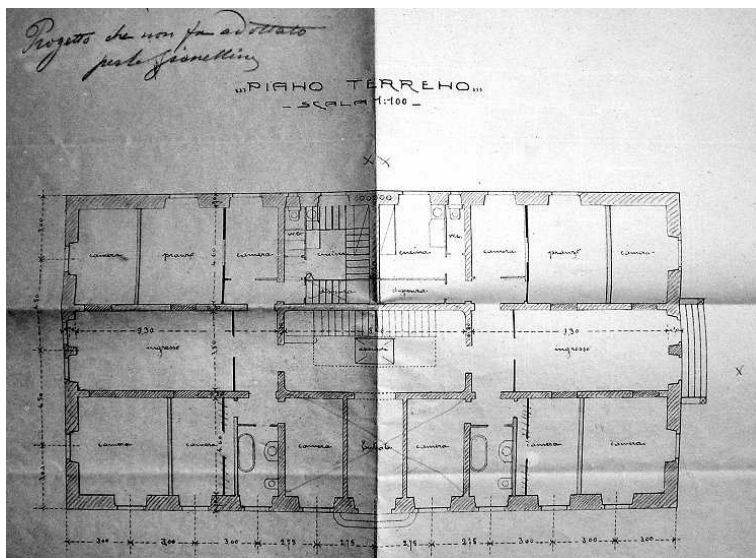 Progetto che non fu adottato
per la Gianellina
PIANO TERRENO
SCALA 1:100
X X
camera
pranzo
camera
W.C.
cucina
cucina
W.C.
camera
pranzo
camera
dispensa
dispensa
9,30
9,30
ingresso
ingresso
X
camera
camera
camera
camera
camera
camera
4.50
4.50
3.00 3.00 3.00 2.75 2.75 2.75 2.75 3.00 3.00 3.00